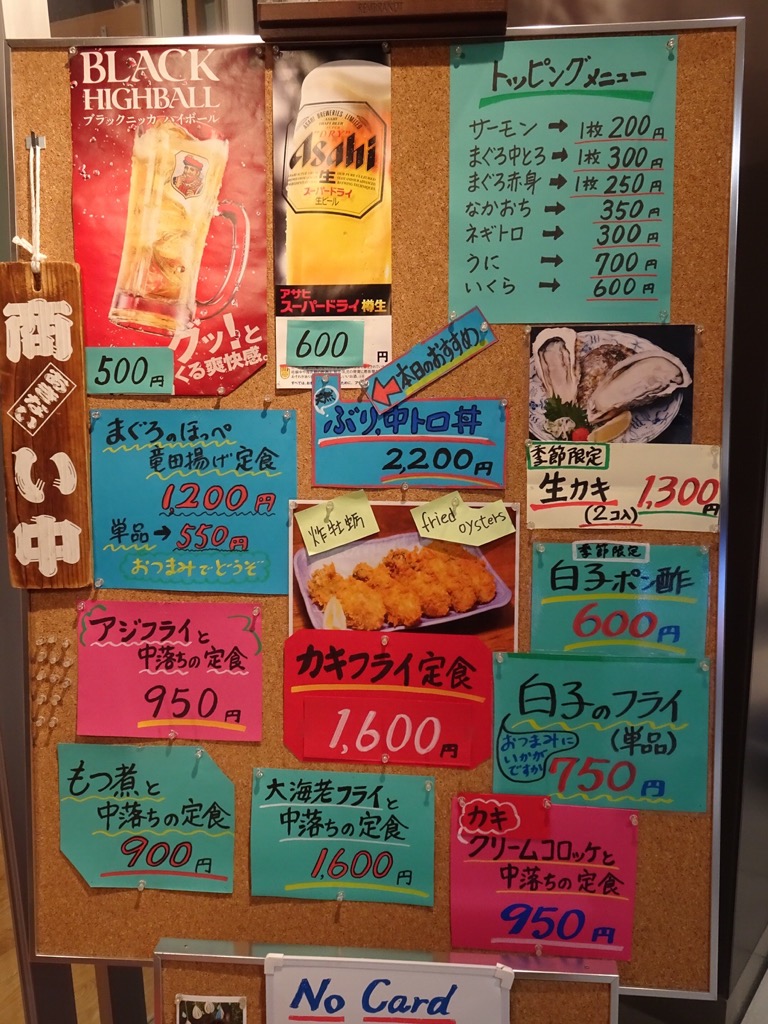 BLACK
HIGHBALL
ブラックニッカ ハイボール
グッ!と
くる爽快感。
500円
Asahi
生
スーパードライ
生ビール
アサヒ
スーパードライ 樽生
600円
トッピングメニュー
サーモン → 1枚 200円
まぐろ中とろ → 1枚 300円
まぐろ赤身 → 1枚 250円
なかおち → 350円
ネギトロ → 300円
うに → 700円
いくら → 600円
商い中
あきない
本日のおすすめ
ぶり,中トロ丼
2,200円
まぐろのほっぺ
竜田揚げ定食
1,200円
単品→550円
おつまみでどうぞ
季節限定
生カキ 1,300円
(2コ入)
炸牡蛎
fried oysters
カキフライ定食
1,600円
季節限定
白子ポン酢
600円
アジフライと
中落ちの定食
950円
白子のフライ
(単品)
おつまみに
いかが
ですか
750円
もつ煮と
中落ちの定食
900円
大海老フライと
中落ちの定食
1,600円
カキ
クリームコロッケと
中落ちの定食
950円
No Card